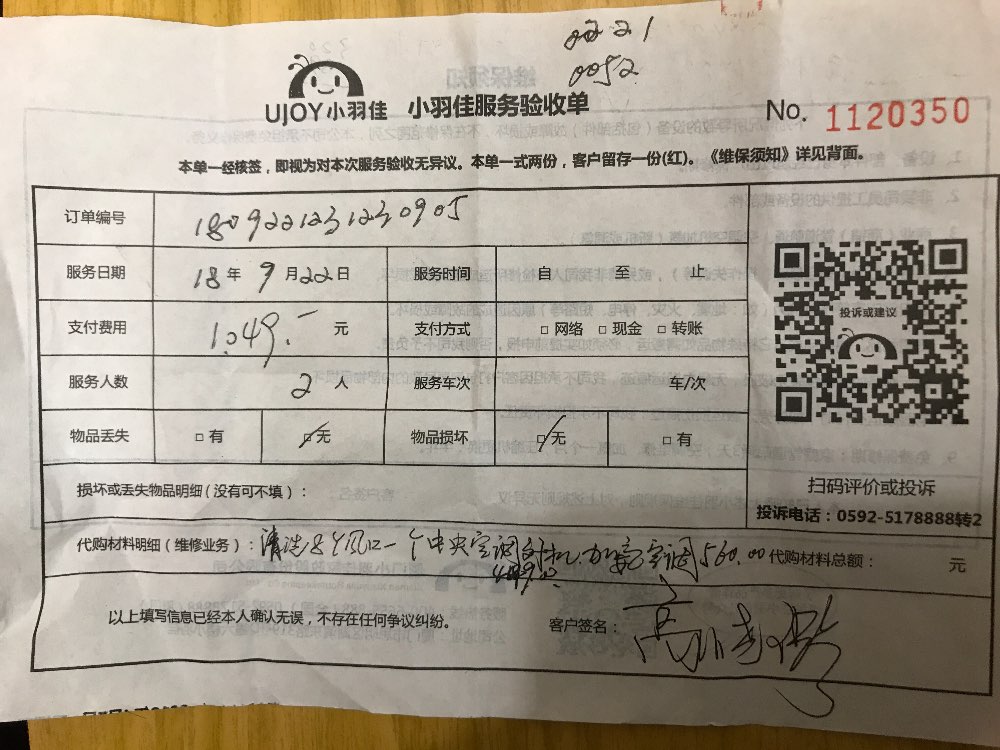 0221
0052
UJOY小羽佳 小羽佳服务验收单 No. 1120350
本单一经核签，即视为对本次服务验收无异议。本单一式两份，客户留存一份(红)。《维保须知》详见背面。
订单编号 1809221231230905
服务日期 18年 9月22日 服务时间 自 至 止
支付费用 1049.- 元 支付方式 □网络 □现金 □转账
服务人数 2人 服务车次 车/次
物品丢失 □有 □无 物品损坏 □无 □有
投诉或建议
扫码评价或投诉
投诉电话：0592-5178888转2
损坏或丢失物品明细（没有可不填）：
代购材料明细（维修业务）：清洗8个风口一个中央空调 空调560.00 代购材料总额： 元
以上填写信息已经本人确认无误，不存在任何争议纠纷。 客户签名：